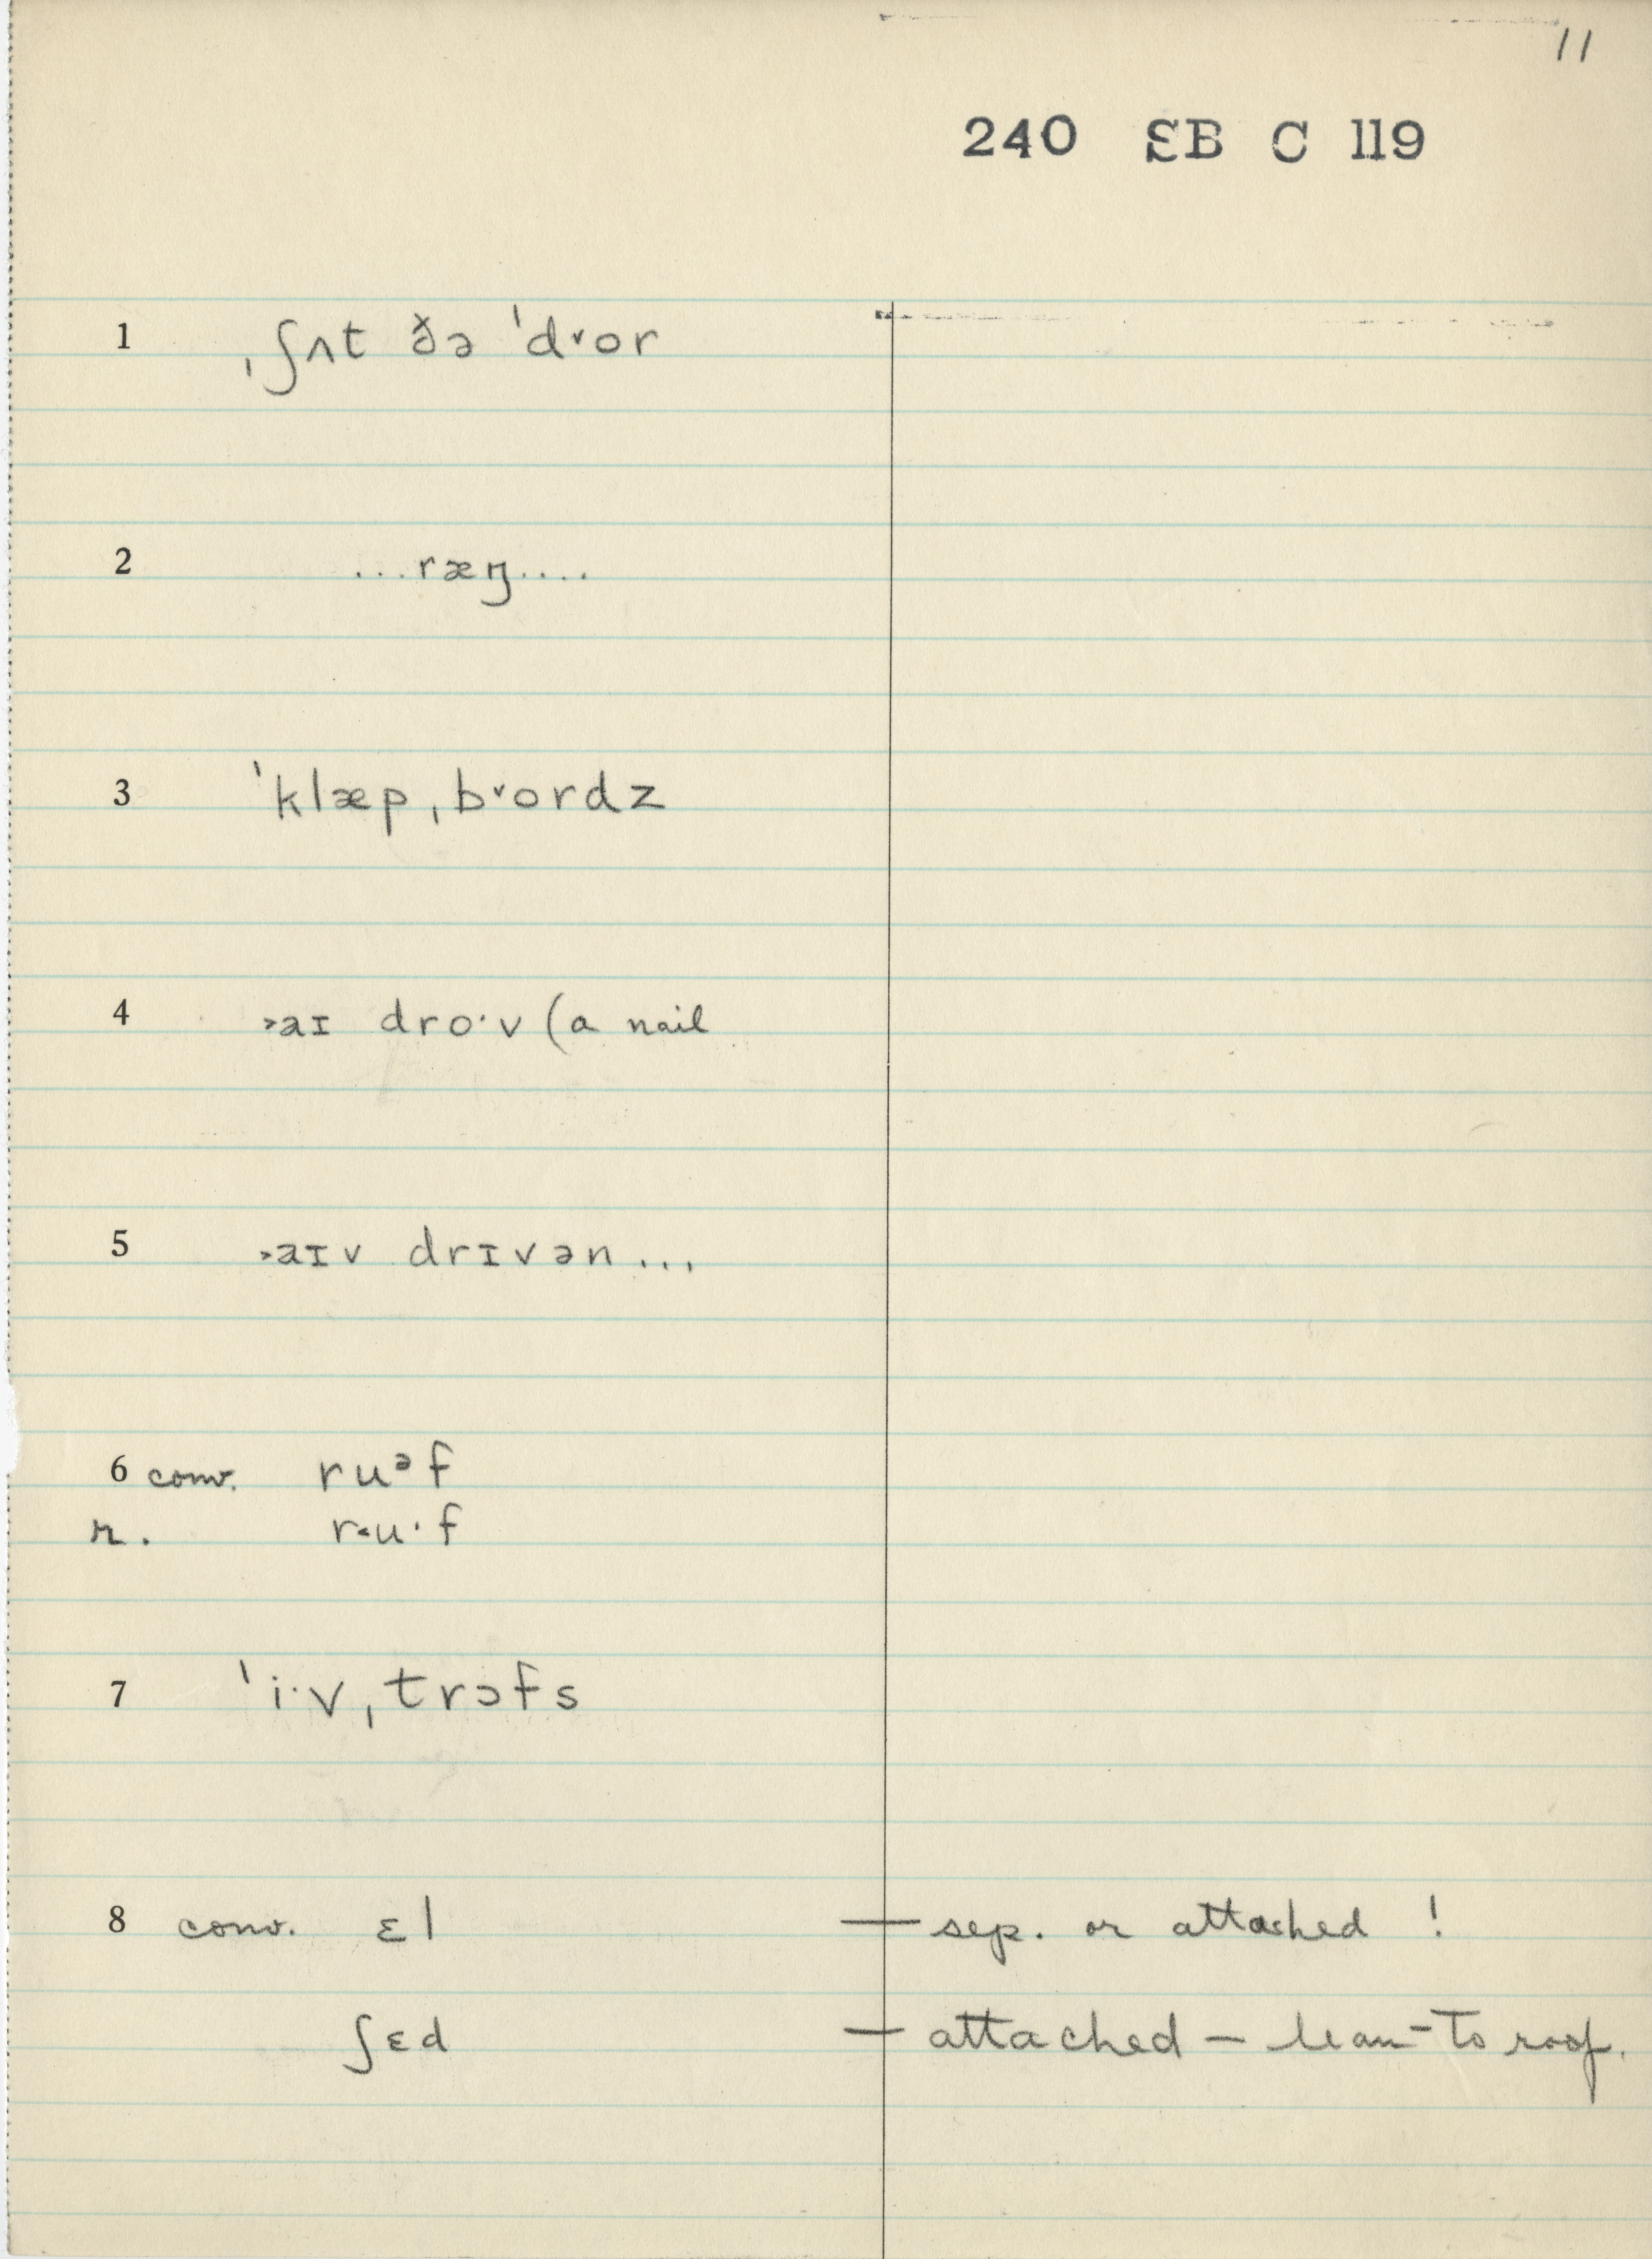 11
240 ƐB C 119
1 ˌʃʌt ðə ˈd˅or
2 ...ræŋ....
3 ˈklæpˌb˅ordz
4 ˃aɪ dro·v (a nail
5 ˃aɪv drɪvən...
6 conv. ruᵊf
r. r˂u·f
7 ˈi·vˌtrɔfs
8 conv. ɛl — sep. or attached !
ʃɛd — attached – lean-to roof.